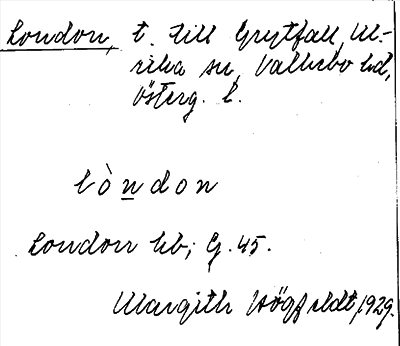 London, t. till Grytfall, Ul-
rika sn, Vallerbo hd,
Österg. l.
lòn̲don
London hb; G. 45.
Margith Högfeldt, 1929.